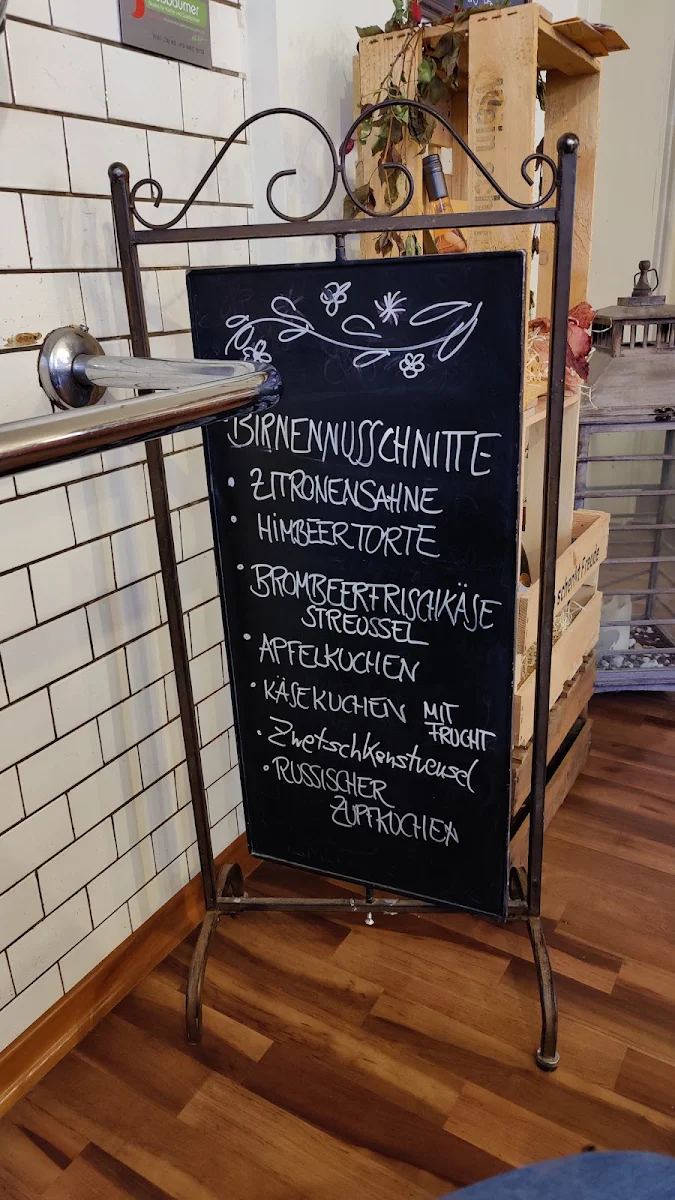 BIRNENNUSSCHNITTE
• ZITRONENSAHNE
• HIMBEERTORTE
• BROMBEERFRISCHKÄSE
STREUSSEL
• APFELKUCHEN
• KÄSEKUCHEN MIT
FRUCHT
• Zwetschkenstreusel
• RUSSISCHER
ZUPFKUCHEN
schenkt Freude